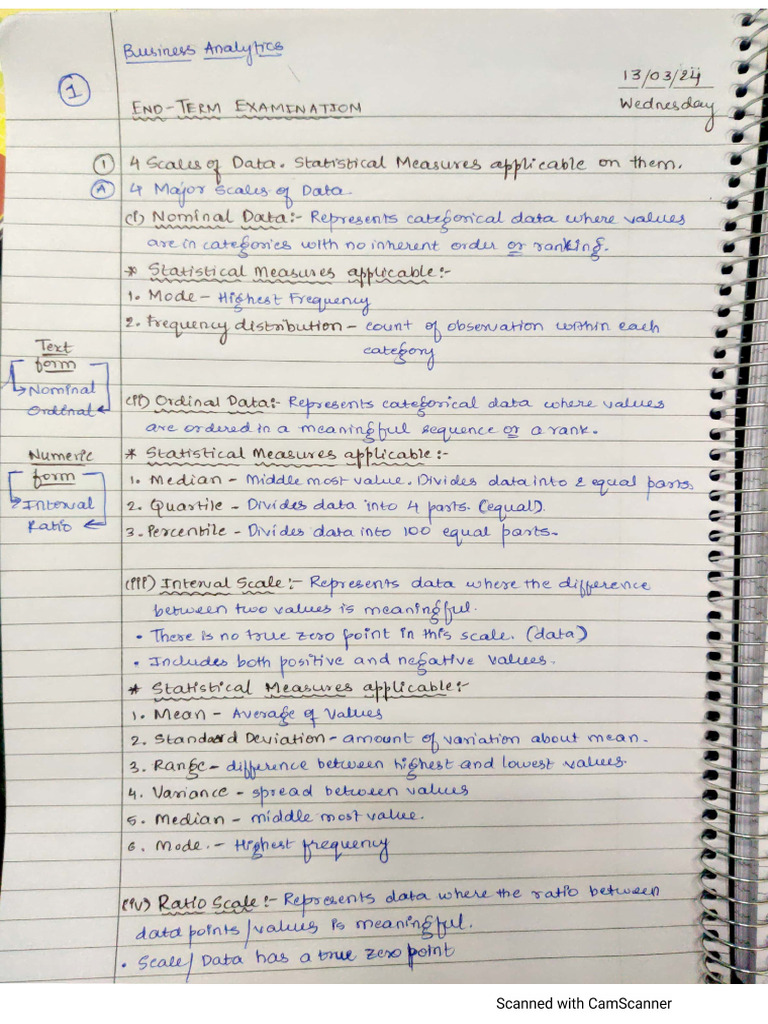 Business Analytics
13/03/24
1
END-TERM EXAMINATION
Wednesday
1 4 Scales of Data. Statistical Measures applicable on them.
A 4 Major Scales of Data.
(i) Nominal Data:- Represents categorical data where values
are in categories with no inherent order or ranking.
* Statistical Measures applicable:-
1. Mode - Highest Frequency
2. Frequency distribution - count of observation within each
category
Text
form
Nominal
Ordinal
(ii) Ordinal Data:- Represents categorical data where values
are ordered in a meaningful sequence or a rank.
Numeric
form
Interval
Ratio
* Statistical Measures applicable:-
1. Median - Middle most value. Divides data into 2 equal parts.
2. Quartile - Divides data into 4 parts. (equal).
3. Percentile - Divides data into 100 equal parts.
(iii) Interval Scale:- Represents data where the difference
between two values is meaningful.
• There is no true zero point in this scale. (data)
• Includes both positive and negative values.
* Statistical Measures applicable:-
1. Mean - Average of Values
2. Standard Deviation - amount of variation about mean.
3. Range - difference between highest and lowest values.
4. Variance - spread between values
5. Median - middle most value.
6. Mode. - Highest frequency
(iv) Ratio Scale:- Represents data where the ratio between
data points/values is meaningful.
• Scale/Data has a true zero point
Scanned with CamScanner